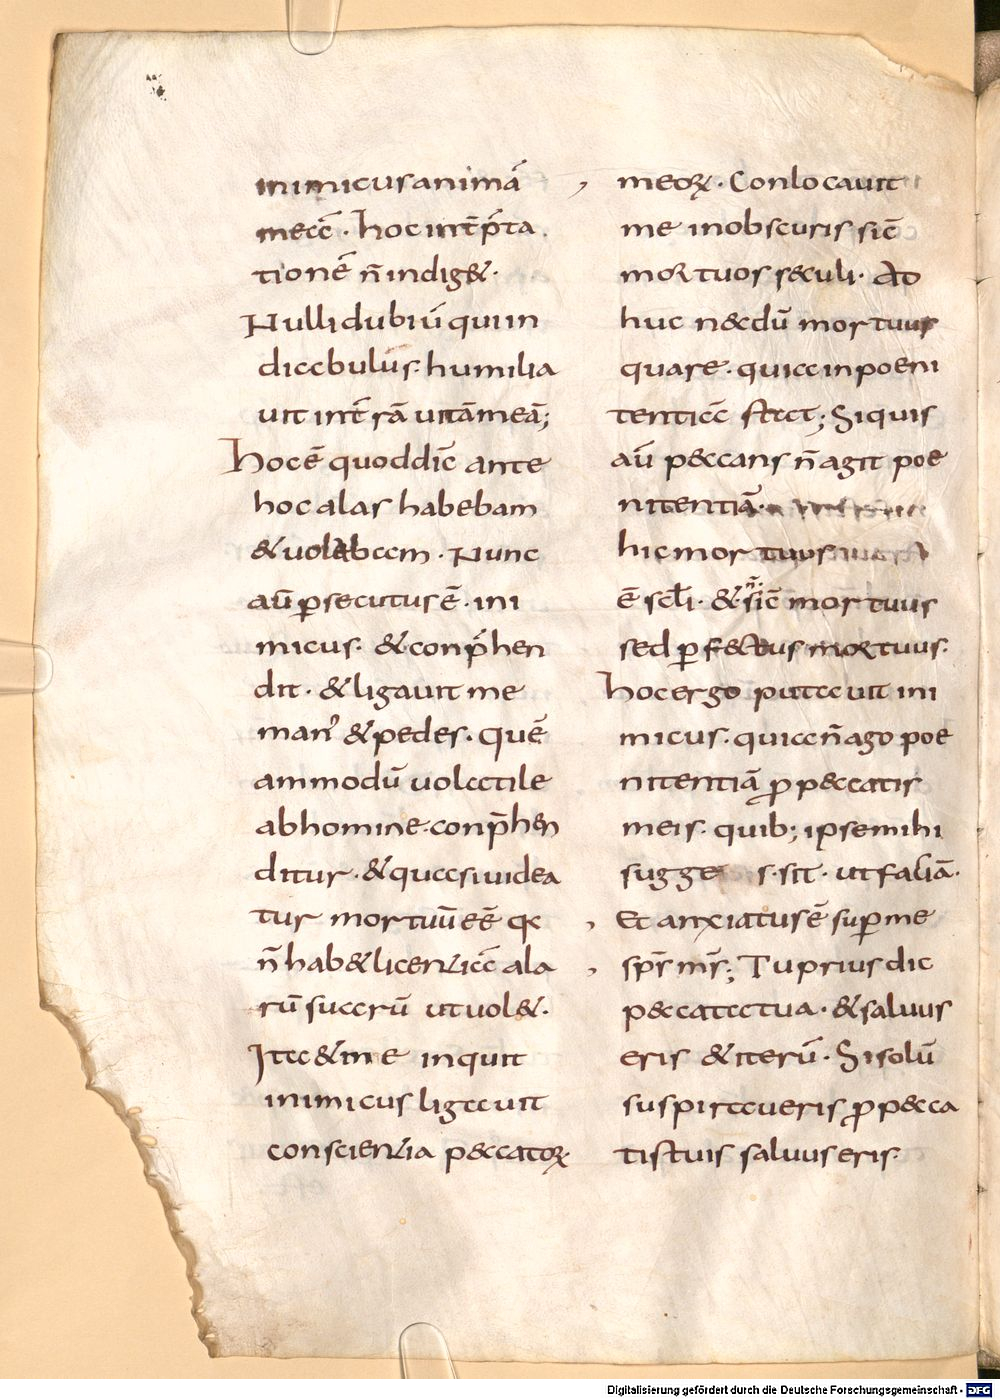 inimicus animā
meā. hoc int̄p̄ta
tionē n̄ indig&.
Nulli dubiū qui in
diabulus. humilia
uit int̄rā uitā meā;
hoc ē quod dic̄ ante
hoc alas habebam
& uolabam. Nunc
aū ꝑsecutus ē. ini
micus. & conp̄hen
dit. & ligauit me
man' & pedes. quē
ammodū uolatile
ab homine. conp̄hen
ditur. & qua si uidea
tur mortuū eē q
n̄ hab& licentiā ala
rū suarū ut uol&.
Ita & me inquit
inimicus ligauit
conscientia peccatoꝝ
meoꝝ. Conlocauit
me in obscuris sic̄
mortuos seculi. Ad
huc necdū mortuus
quare. quia in poeni
tentia stat; Si quis
aū peccans n̄ agit poe
nitentiā.
hic mortuus
ē scl̄i. & n̄ sic̄ mortuus
sed ꝑfectus mortuus.
hoc ergo putauit ini
micus. quia n̄ ago poe
nitentiā ꝓ peccatis
meis. quib; ipse mihi
sugges sit. ut faciā.
Et anxiatus ē suꝑ me
sp̄s m̄s; Tu prius dic
peccata tua. & saluus
eris & iterū. Si solū
suspiraueris ꝓ pecca
tis tuis saluus eris.
Digitalisierung gefördert durch die Deutsche Forschungsgemeinschaft - DFG